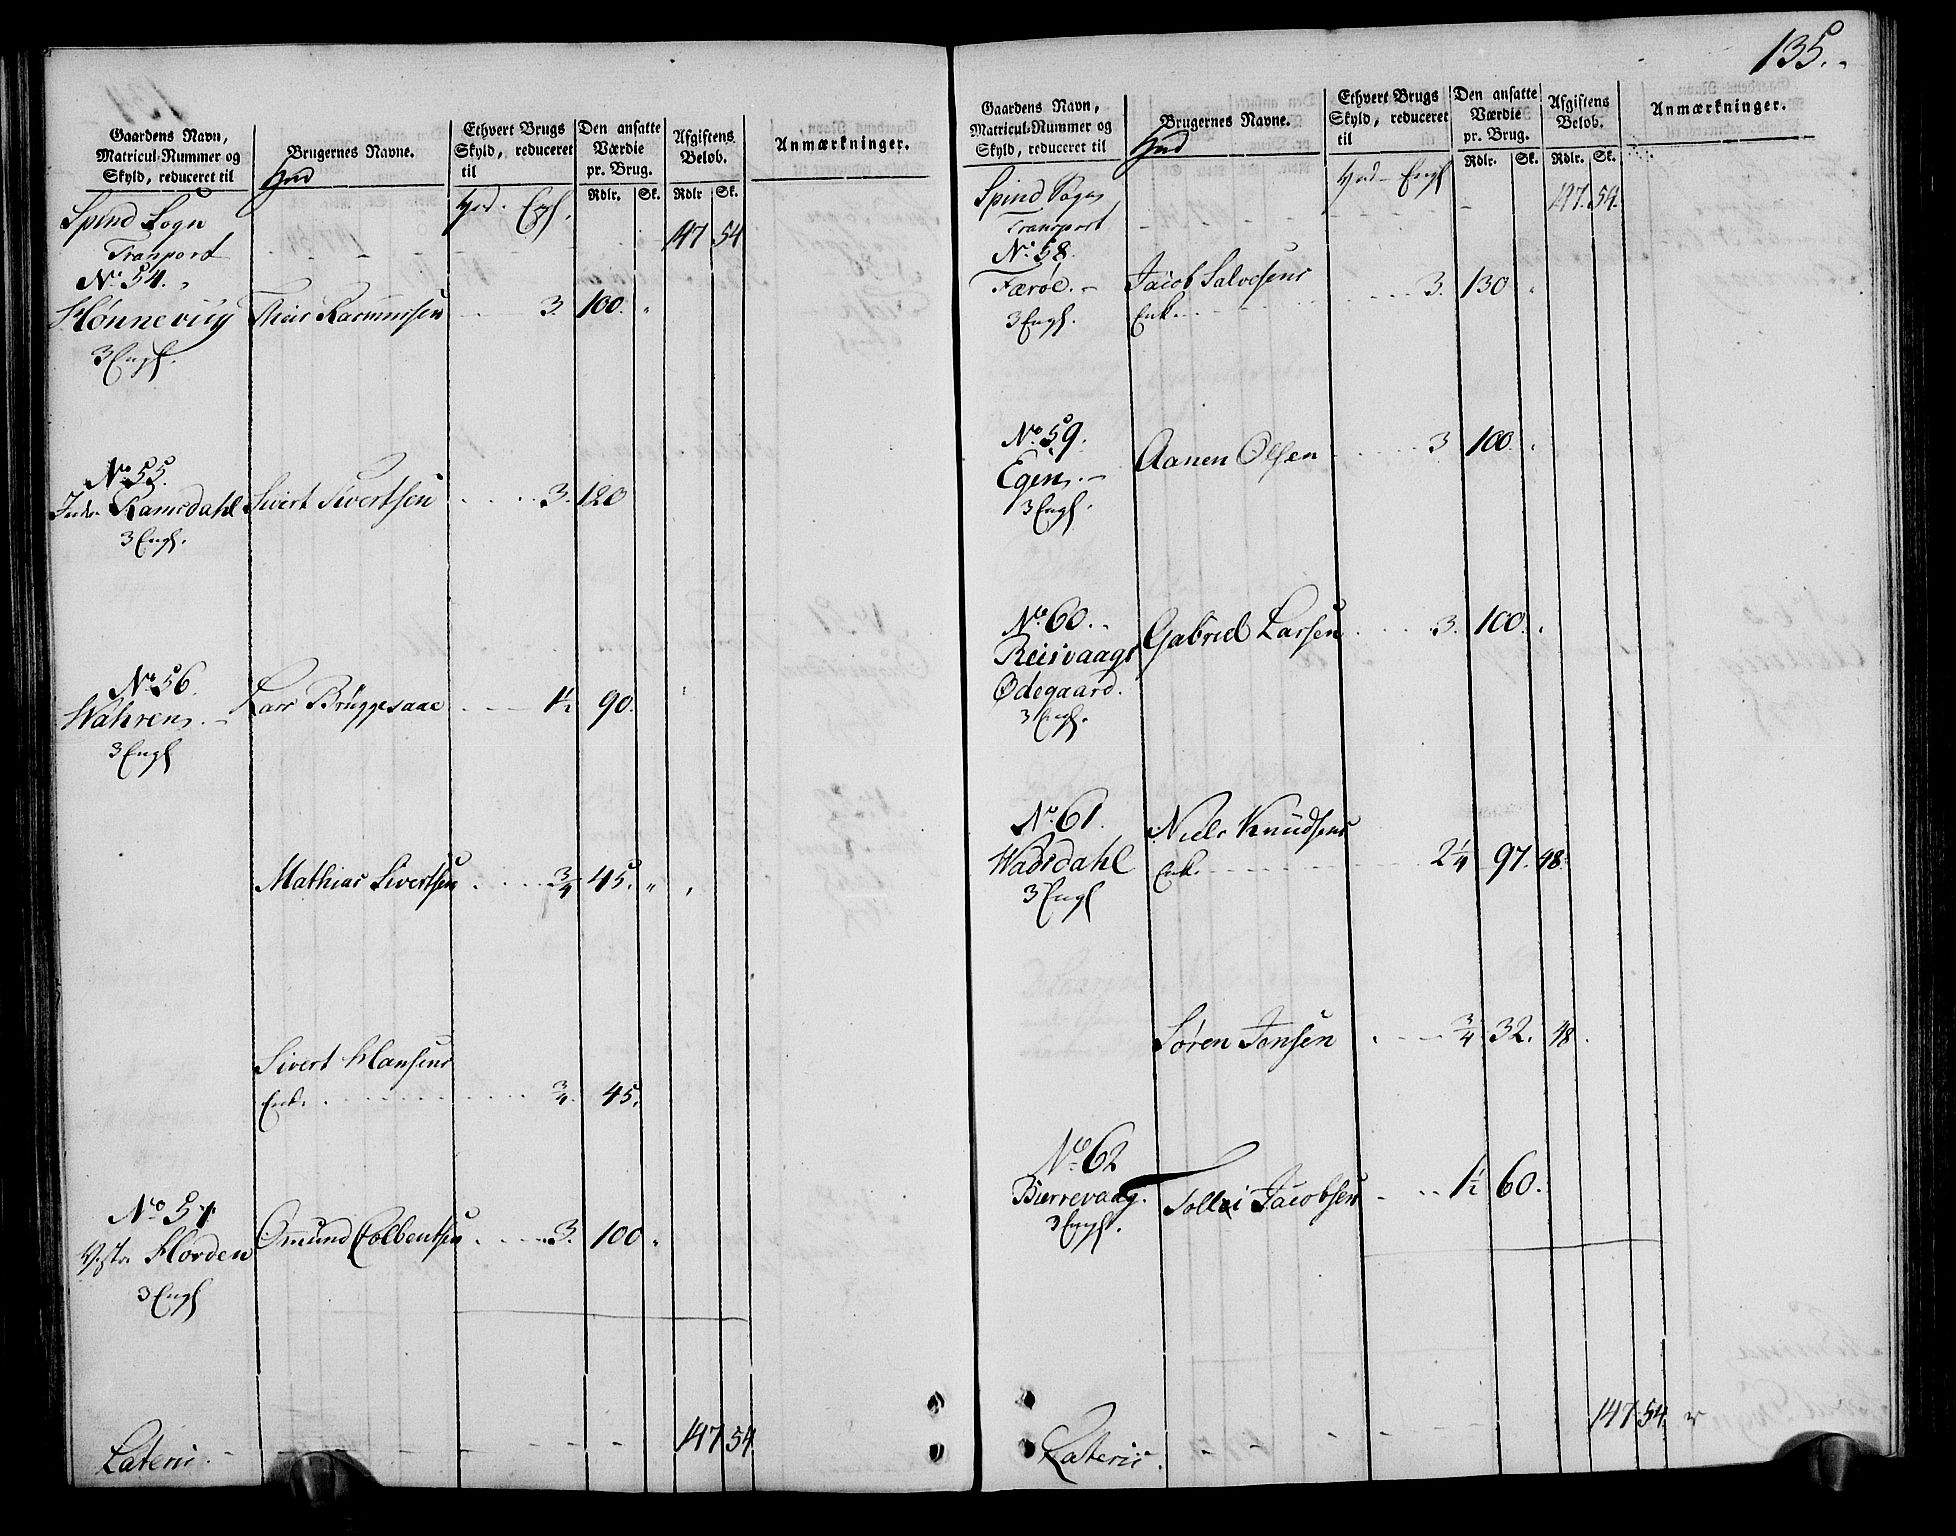 Gaardens Navn, Matricul-Nummer og Skyld, reduceret til | Brugernes Navne. | Ethvert Brugs Skyld, reduceret til | Den ansatte Værdie pr. Brug. | Afgiftens Belob. | Anmærkninger.
Hud | Rdlr. Sk. | Rdlr Sk.
Spind Sogn
Hud. Engl.
Transport 147 54
No. 54.
Hønnevug Theis Rasmussen 3. 100.
3 Engl.
No. 55.
Indr. Ramsdahl Sivert Sivertsen 3. 120
3 Engl.
No. 56.
Wahrens. Lars Brüggesaae 1½ 90.
3 Engl
Mathias Sivertsen ¾ 45.
Sivert Hansens
Enk. ¾ 45.
No. 57.
Vestr. Horden Omund Colbentsen 3. 100
3 Engl
Lateris 147 54
135.
Gaardens Navn, Matricul-Nummer og Skyld, reduceret til | Brugernes Navne. | Ethvert Brugs Skyld, reduceret til | Den ansatte Værdie pr. Brug. | Afgiftens Belob. | Anmærkninger.
Hud | Rdlr. Sk. | Rdlr. Sk.
Spind Sogn
Hud Engl
Transport 147. 54.
No. 58.
Færøe. Jacob Salvesens
3 Engl. Enk. 3. 130
No. 59.
Egens. Aanen Olsen 3 100.
3 Engl.
No. 60.
Reisvaags Gabriel Larsen 3. 100.
Ødegaard.
3 Engl.
No. 61.
Niels Knudsens
Waasdahl Enk. 2¼ 97. 48.
3 Engl
Søren Jonsen ¾ 32. 48.
No. 62
Bærrevaag. Tollei Jacobsen 1½ 60.
3 Engl.
Lateris. 147 54.